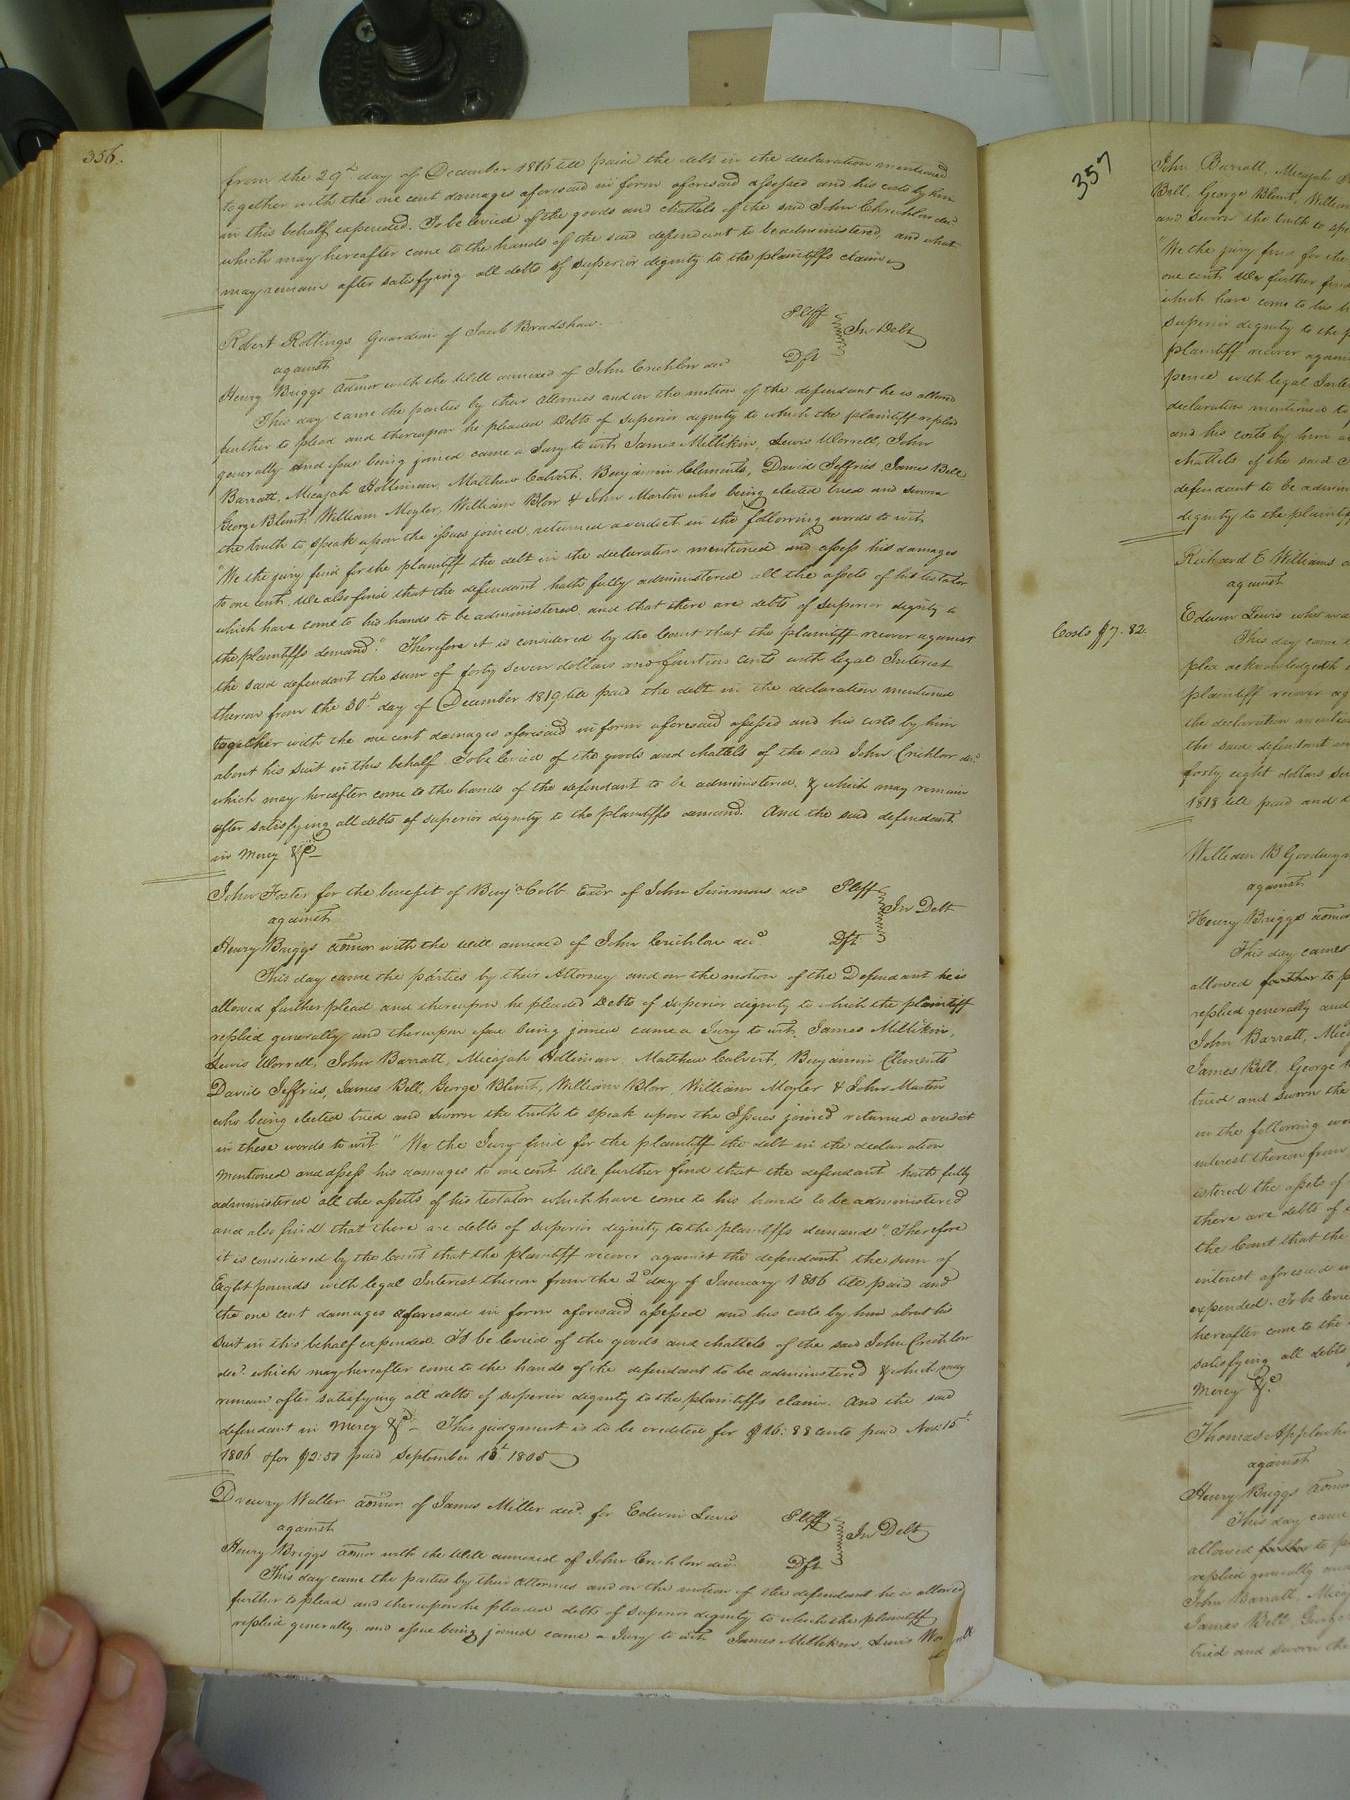 356.
from the 29th day of December 1816 till paid the debt in the declaration mentioned
together with the one cent damages aforesaid in form aforesaid assessed and his costs by him
in this behalf expended. To be levied of the goods and chattels of the said John Chrichlow decd
which may hereafter come to the hands of the said defendant to be administered, and what
may remain after satisfying all debts of superior dignity to the plaintiffs claim
Robert Rollings Guardian of Jacob Bradshaw. Pltff
against In Debt
Henry Briggs admor with the Will annexed of John Crichlow decd Dft
This day came the parties by their attornies and on the motion of the defendant he is allowed
further to plead and thereupon he pleaded Debts of superior dignity to which the plaintiff replied
generally and issue being joined came a Jury to wit, James Millikin, Lewis Worrell, John
Barratt, Micajah Holliman, Matthew Calvert, Benjamin Clements, David Jeffries James Bell
George Blunt, William Moyler, William Blow & John Martin who being elected tried and sworn
the truth to speak upon the issues joined, returned a verdict in the following words to wit,
"We the jury find for the plaintiff the debt in the declaration mentioned and assess his damages
to one cent. We also find that the defendant hath fully administered all the assets of his testator
which have come to his hands to be administered and that there are debts of superior dignity to
the plaintiffs demand." Therefore it is considered by the Court that the plaintiff recover against
the said defendant the sum of forty seven dollars and fourteen cents with legal Interest
thereon from the 30th day of December 1819 till paid the debt in the declaration mentioned
together with the one cent damages aforesaid in form aforesaid assessed and his costs by him
about his suit in this behalf. To be levied of the goods and chattels of the said John Crichlow decd
which may hereafter come to the hands of the defendant to be administered, & which may remain
after satisfying all debts of superior dignity to the plaintiffs demand. And the said defendant
in Mercy &c
John Foster for the benefit of Benja Cobb Exor of John Simmons decd Pltff
against In Debt
Henry Briggs admor with the will annexed of John Crichlow decd Dft
This day came the parties by their Attorney and on the motion of the Defendant he is
allowed further plead and thereupon he pleaded Debts of superior dignity to which the plaintiff
replied generally and thereupon issue being joined came a Jury to wit, James Millikin,
Lewis Worrell, John Barratt, Micajah Holliman, Matthew Calvert, Benjamin Clements
David Jeffries, James Bell, George Blunt, William Blow, William Moyler & John Martin
who being elected tried and sworn the truth to speak upon the Issues joined returned a verdict
in these words to wit "We the Jury find for the plaintiff the debt in the declaration
mentioned and assess his damages to one cent We further find that the defendant hath fully
administered all the assetts of his testator which have come to his hands to be administered
and also find that there are debts of superior dignity to the plaintiffs demand". Therefore
it is considered by the Court that the plaintiff recover against the defendant the sum of
Eight pounds with legal Interest thereon from the 2d day of January 1806 till paid and
the one cent damages aforesaid in form aforesaid assessed and his costs by him about his
suit in this behalf expended. To be levied of the goods and chattels of the said John Crichlow
decd which may hereafter come to the hands of the defendant to be administered & which may
remain after satisfying all debts of superior dignity to the plaintiffs claim. And the said
defendant in Mercy &c This judgment is to be credited for $16.88 cents paid Novr 15th
1806 & for $2.50 paid September 15th 1805
Drewry Walter admor of James Miller decd for Edwin Lewis Pltff
against In Debt
Henry Briggs admor with the Will annexed of John Crichlow decd Dft
This day came the parties by their attornies and on the motion of the defendant he is allowed
further to plead and thereupon he pleaded debts of superior dignity to which the plaintiff
replied generally and issue being joined came a Jury to wit James Millikin, Lewis Worrell
357
John Barratt, Micajah
Bell, George Blunt, William
and sworn the truth to
"We the jury find for the
one cent We further find
which have come to his
superior dignity to the
plaintiff recover against
pence with legal Inte
declaration mentioned
and his costs by him
chattels of the said
defendant to be admin
dignity to the plaintiff
Richard E Williams
against
Edwin Lewis who was
Costs $7.82.
This day came
plea acknowledgeth
plaintiff recover
the declaration mention
the said defendant
forty eight dollars
1818 till paid and
William B Goodwyn
against
Henry Briggs admor
This day came
allowed further to
replied generally and
John Barratt, Mic
James Bell, George
tried and sworn the
in the following
interest thereon from
istered the assets of
there are debts of
the Court that the
interest aforesaid
expended. To be levie
hereafter come to the
satisfying all debts
Mercy &c.
Thomas Applewh
against
Henry Briggs admor
This day came
allowed further to
replied generally and
John Barratt, Micaj
James Bell, George
tried and sworn the